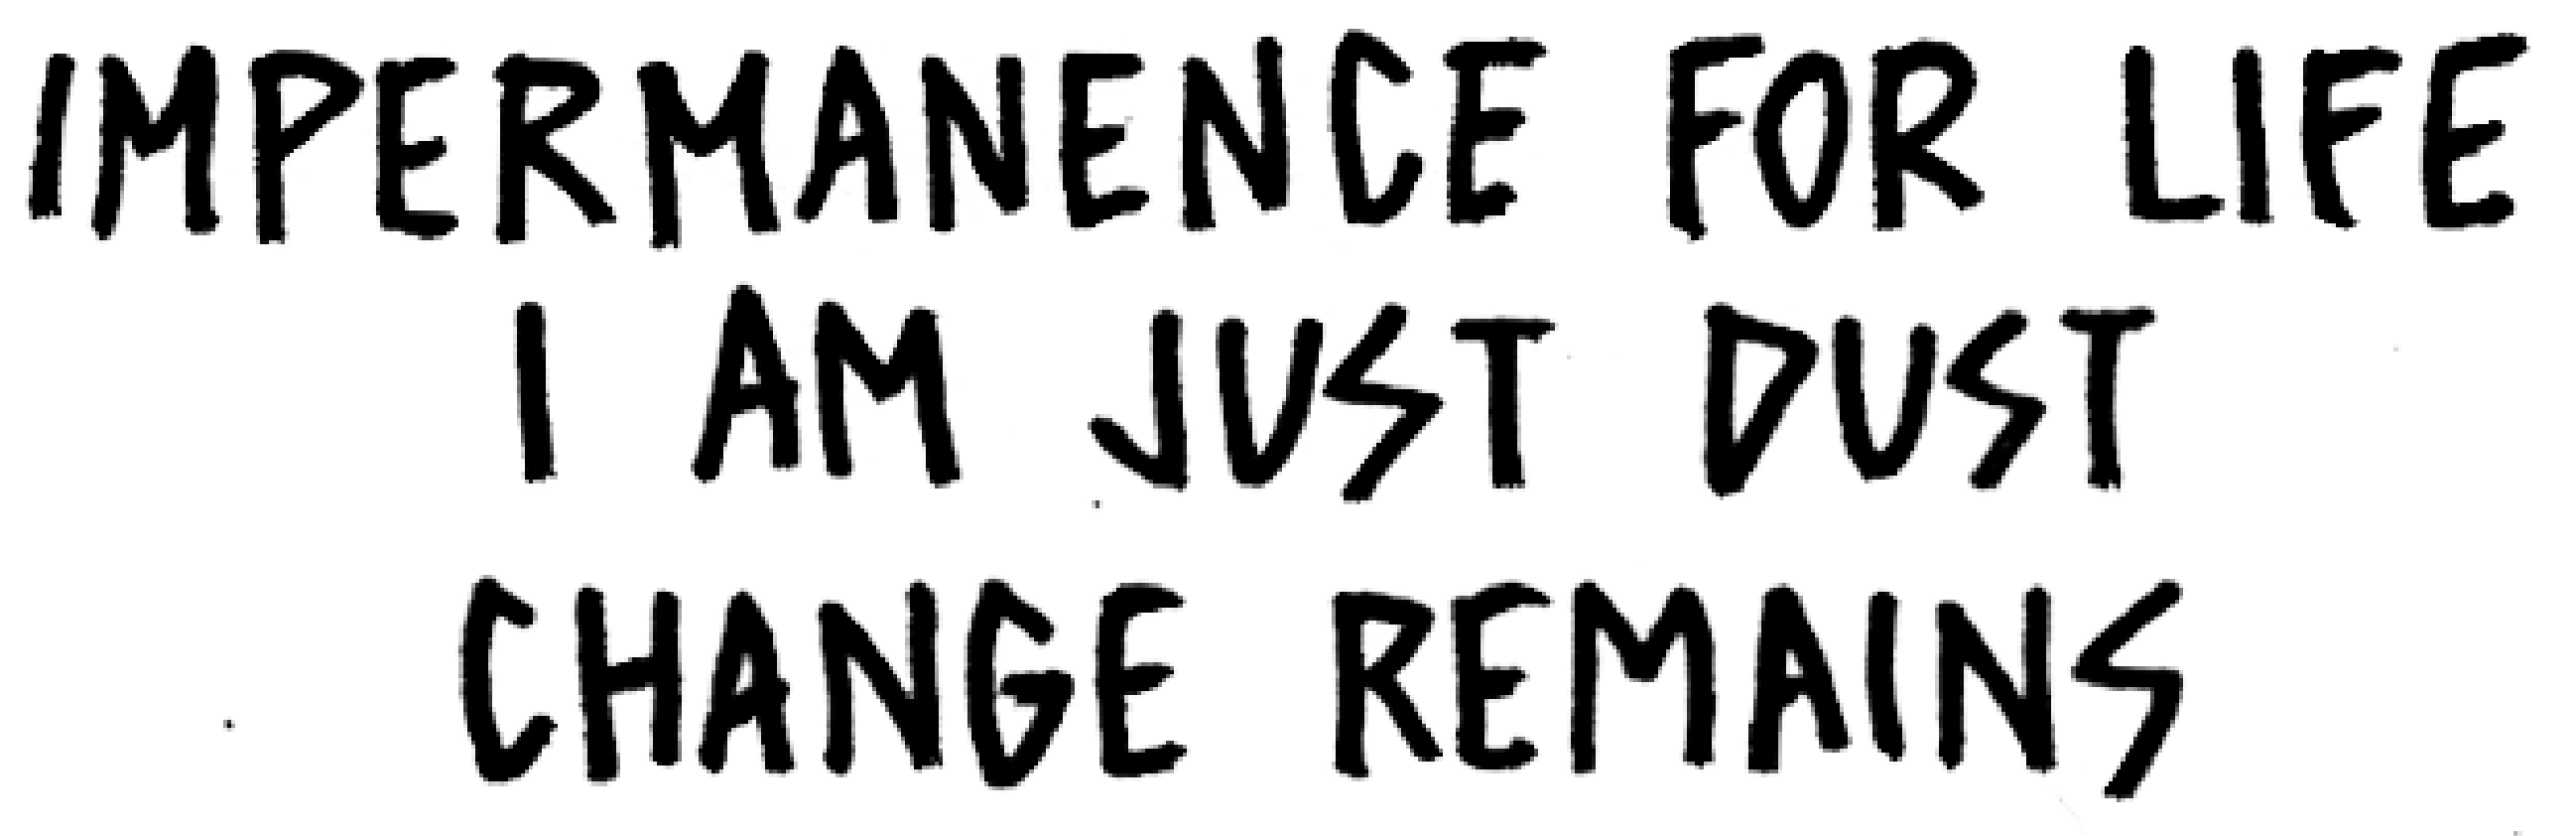 IMPERMANENCE FOR LIFE
I AM JUST DUST
CHANGE REMAINS